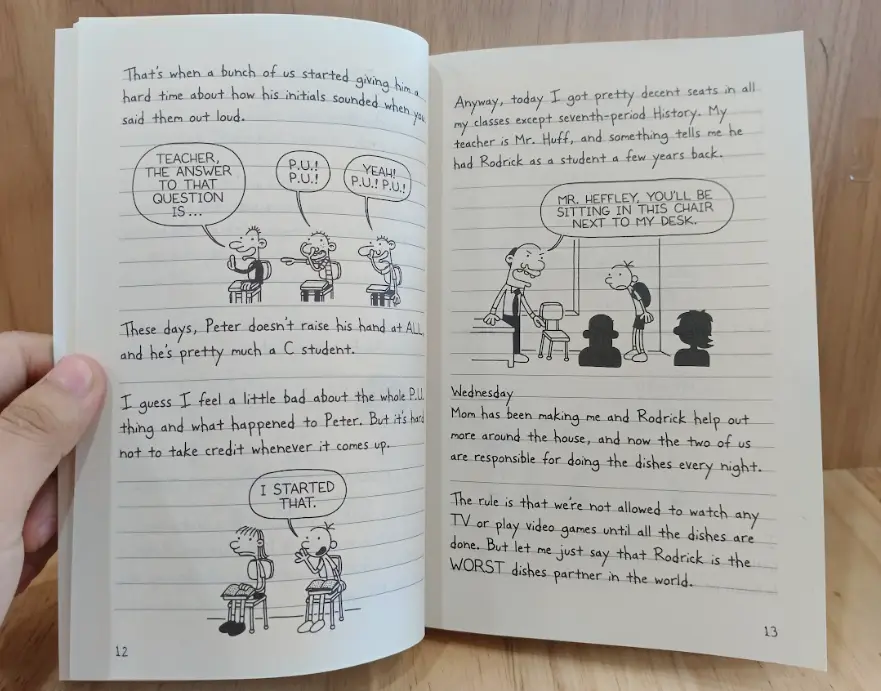 That's when a bunch of us started giving him a
hard time about how his initials sounded when you
said them out loud.
TEACHER,
THE ANSWER
TO THAT
QUESTION
IS ...
P.U.!
P.U.!
YEAH!
P.U.! P.U.!
These days, Peter doesn't raise his hand at ALL,
and he's pretty much a C student.
I guess I feel a little bad about the whole P.U.
thing and what happened to Peter. But it's hard
not to take credit whenever it comes up.
I STARTED
THAT.
12
Anyway, today I got pretty decent seats in all
my classes except seventh-period History. My
teacher is Mr. Huff, and something tells me he
had Rodrick as a student a few years back.
MR. HEFFLEY, YOU'LL BE
SITTING IN THIS CHAIR
NEXT TO MY DESK.
Wednesday
Mom has been making me and Rodrick help out
more around the house, and now the two of us
are responsible for doing the dishes every night.
The rule is that we're not allowed to watch any
TV or play video games until all the dishes are
done. But let me just say that Rodrick is the
WORST dishes partner in the world.
13